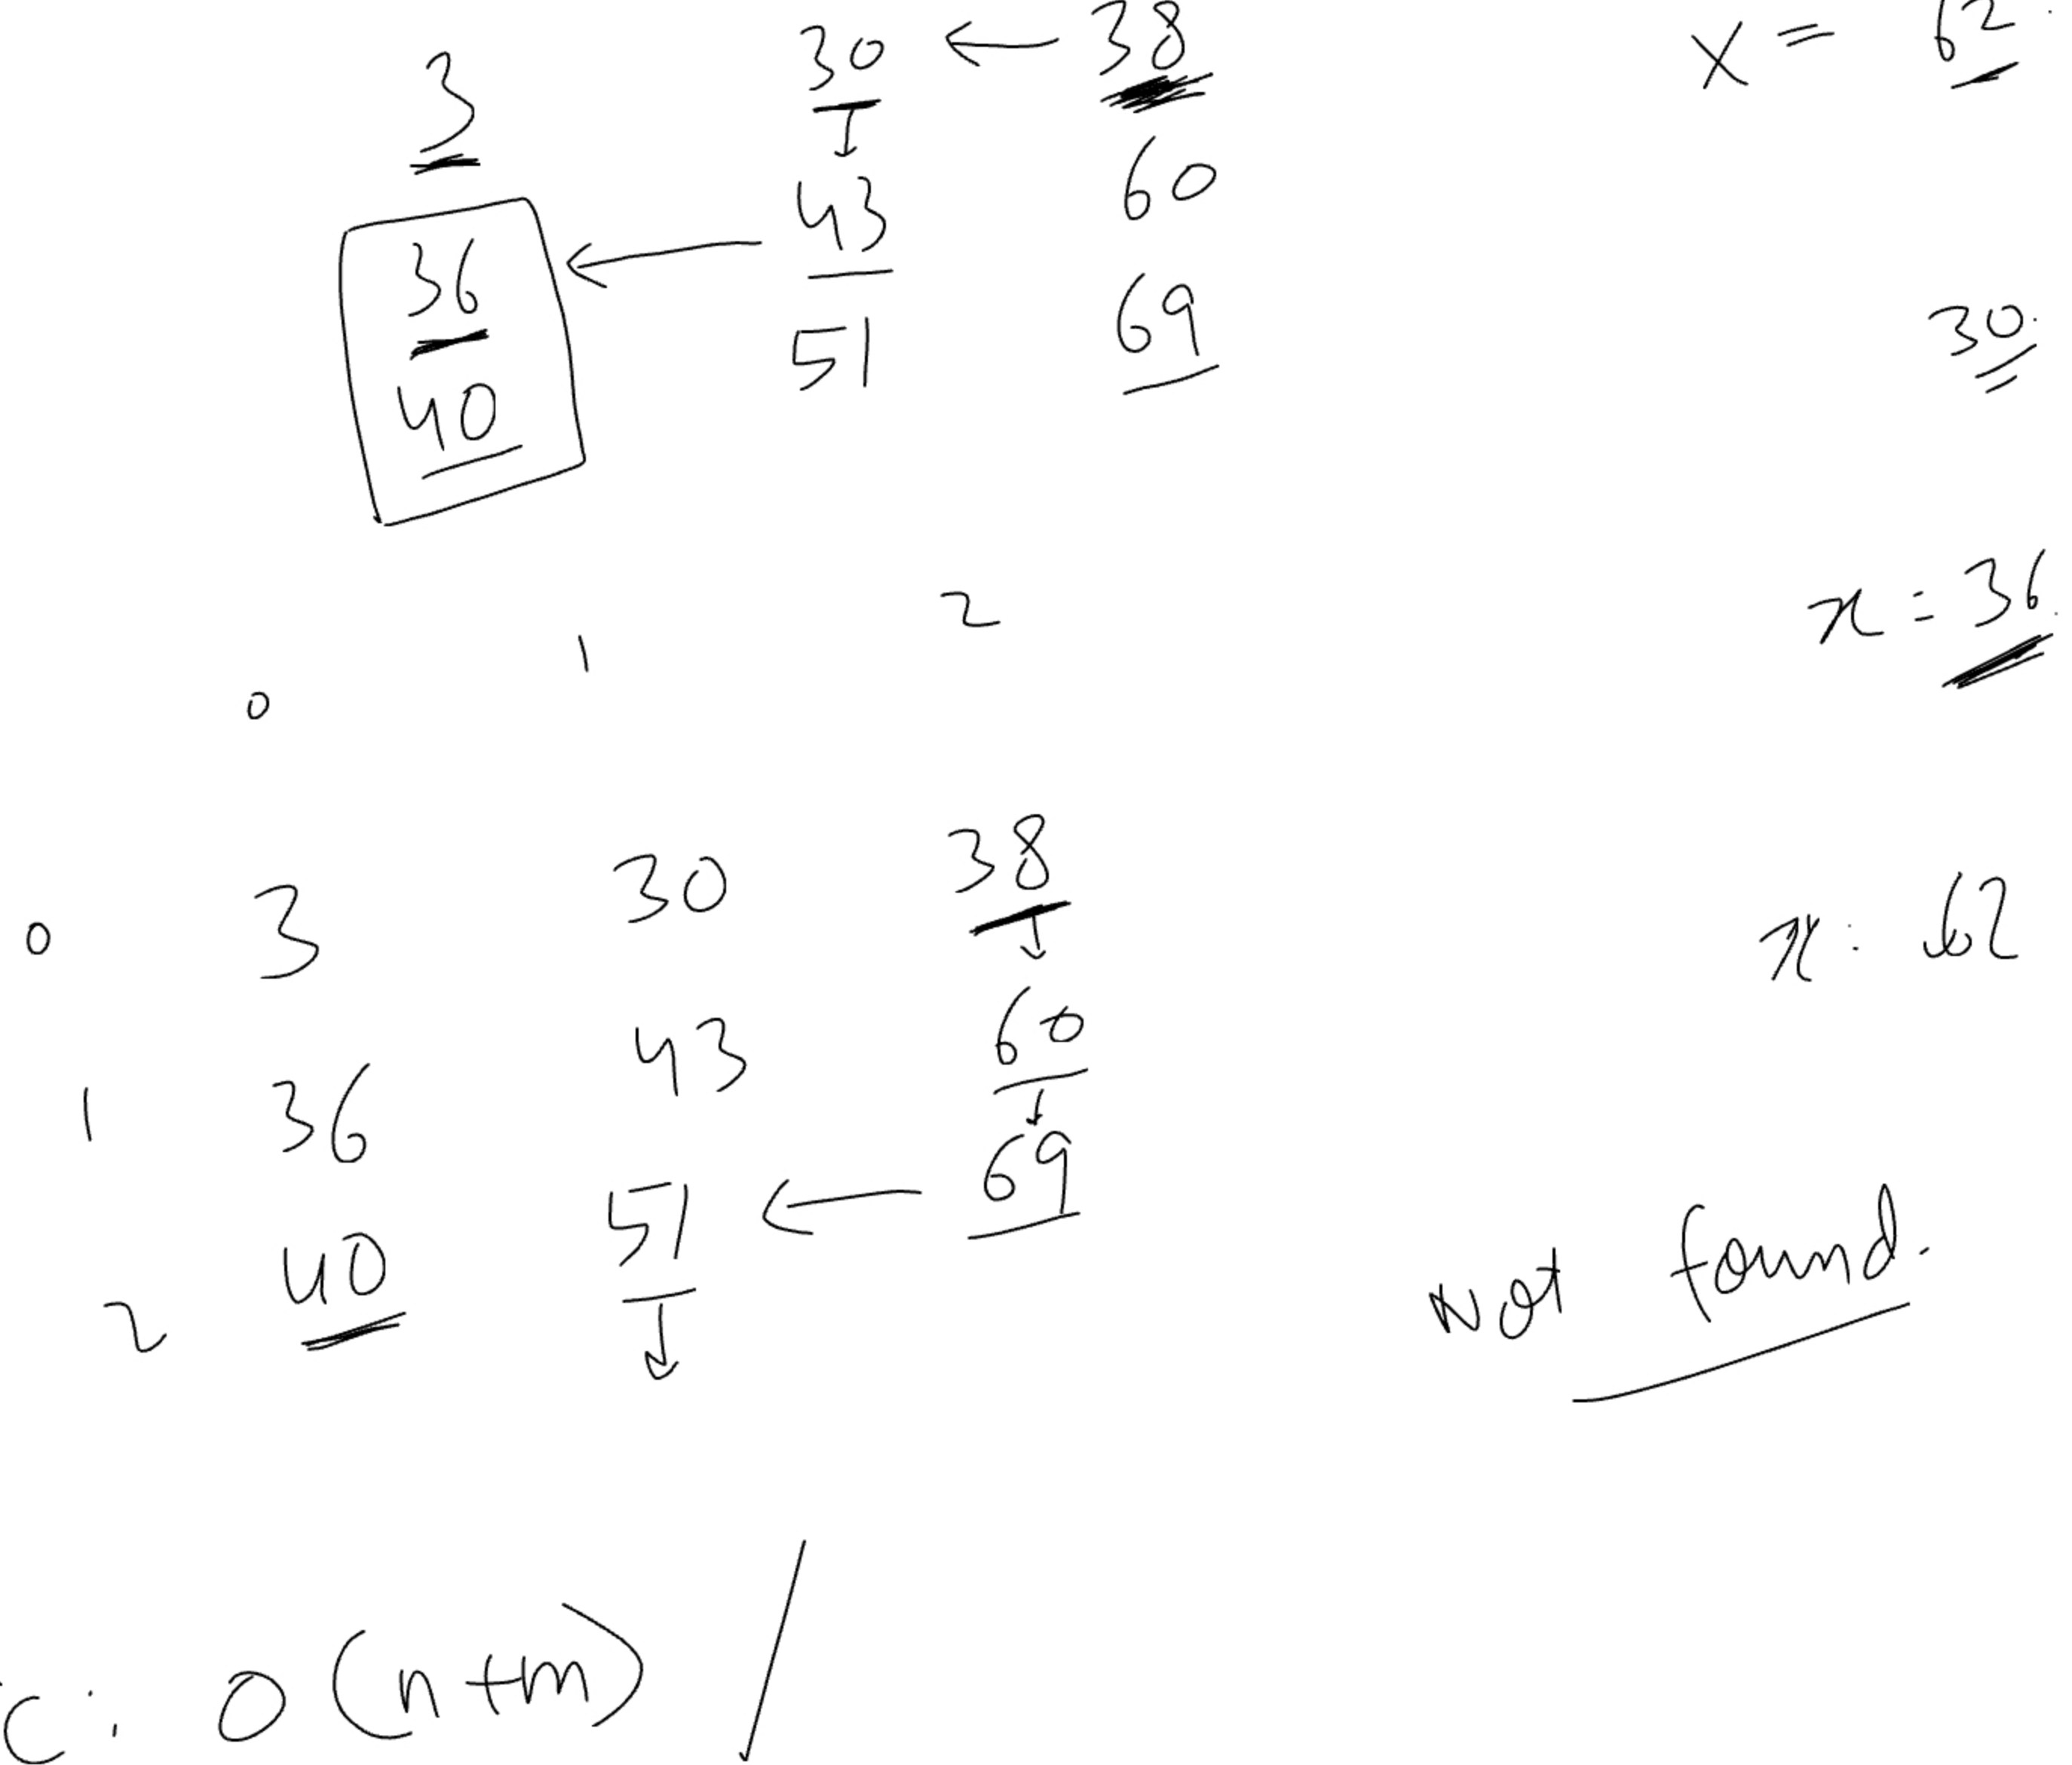 3 30 ← 38 x = 62
43 60
36
51 69 30
40
0 1 2 x = 36
0 3 30 38 x : 62
1 36 43 60
2 40 51 ← 69
Not found.
C: O(n+m)